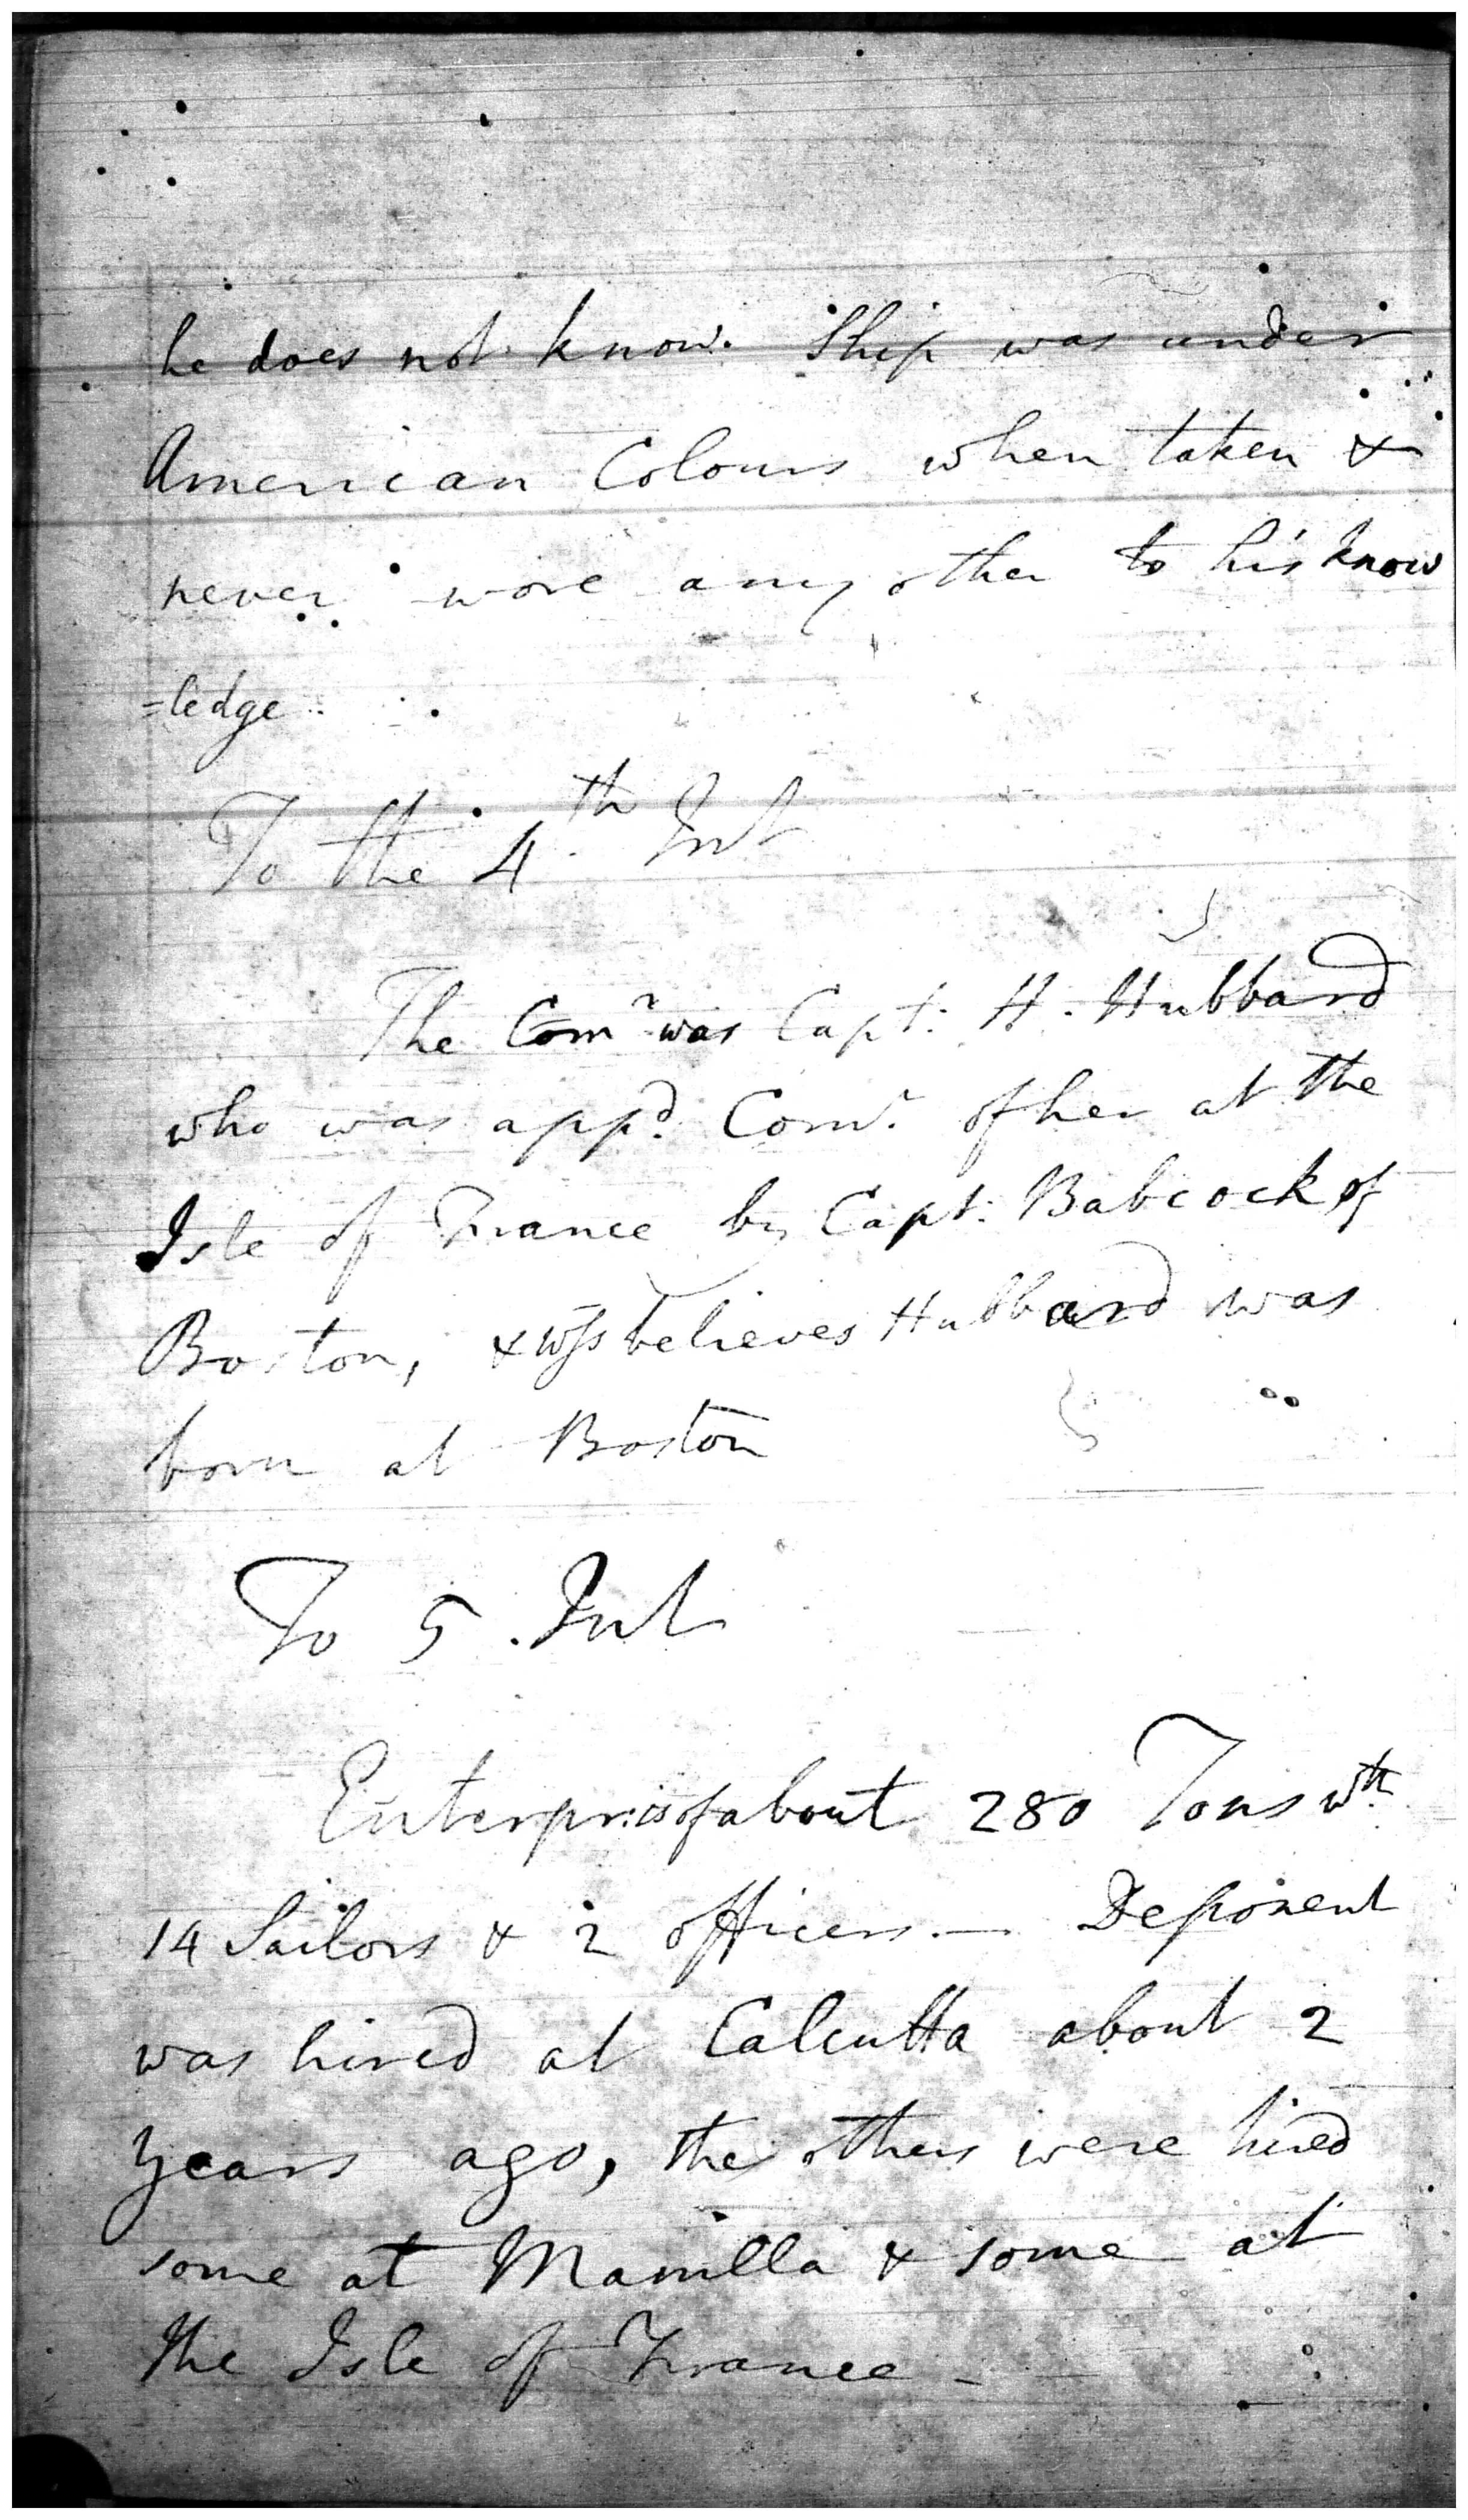 he does not know. Ship was under
American Colours when taken &
never wore any other to his know
=ledge
To the 4th Int
The Comr was Capt: H. Hubbard
who was appd. Comr. of her at the
Isle of France by Capt: Babcock of
Boston, & wss believes Hubbard was
born at Boston
To 5. Int
Enterpris of about 280 Tons wth
14 Sailors & 2 officers. — Deponent
was hired at Calcutta about 2
years ago, the others were hired
some at Manilla & some at
the Isle of France -